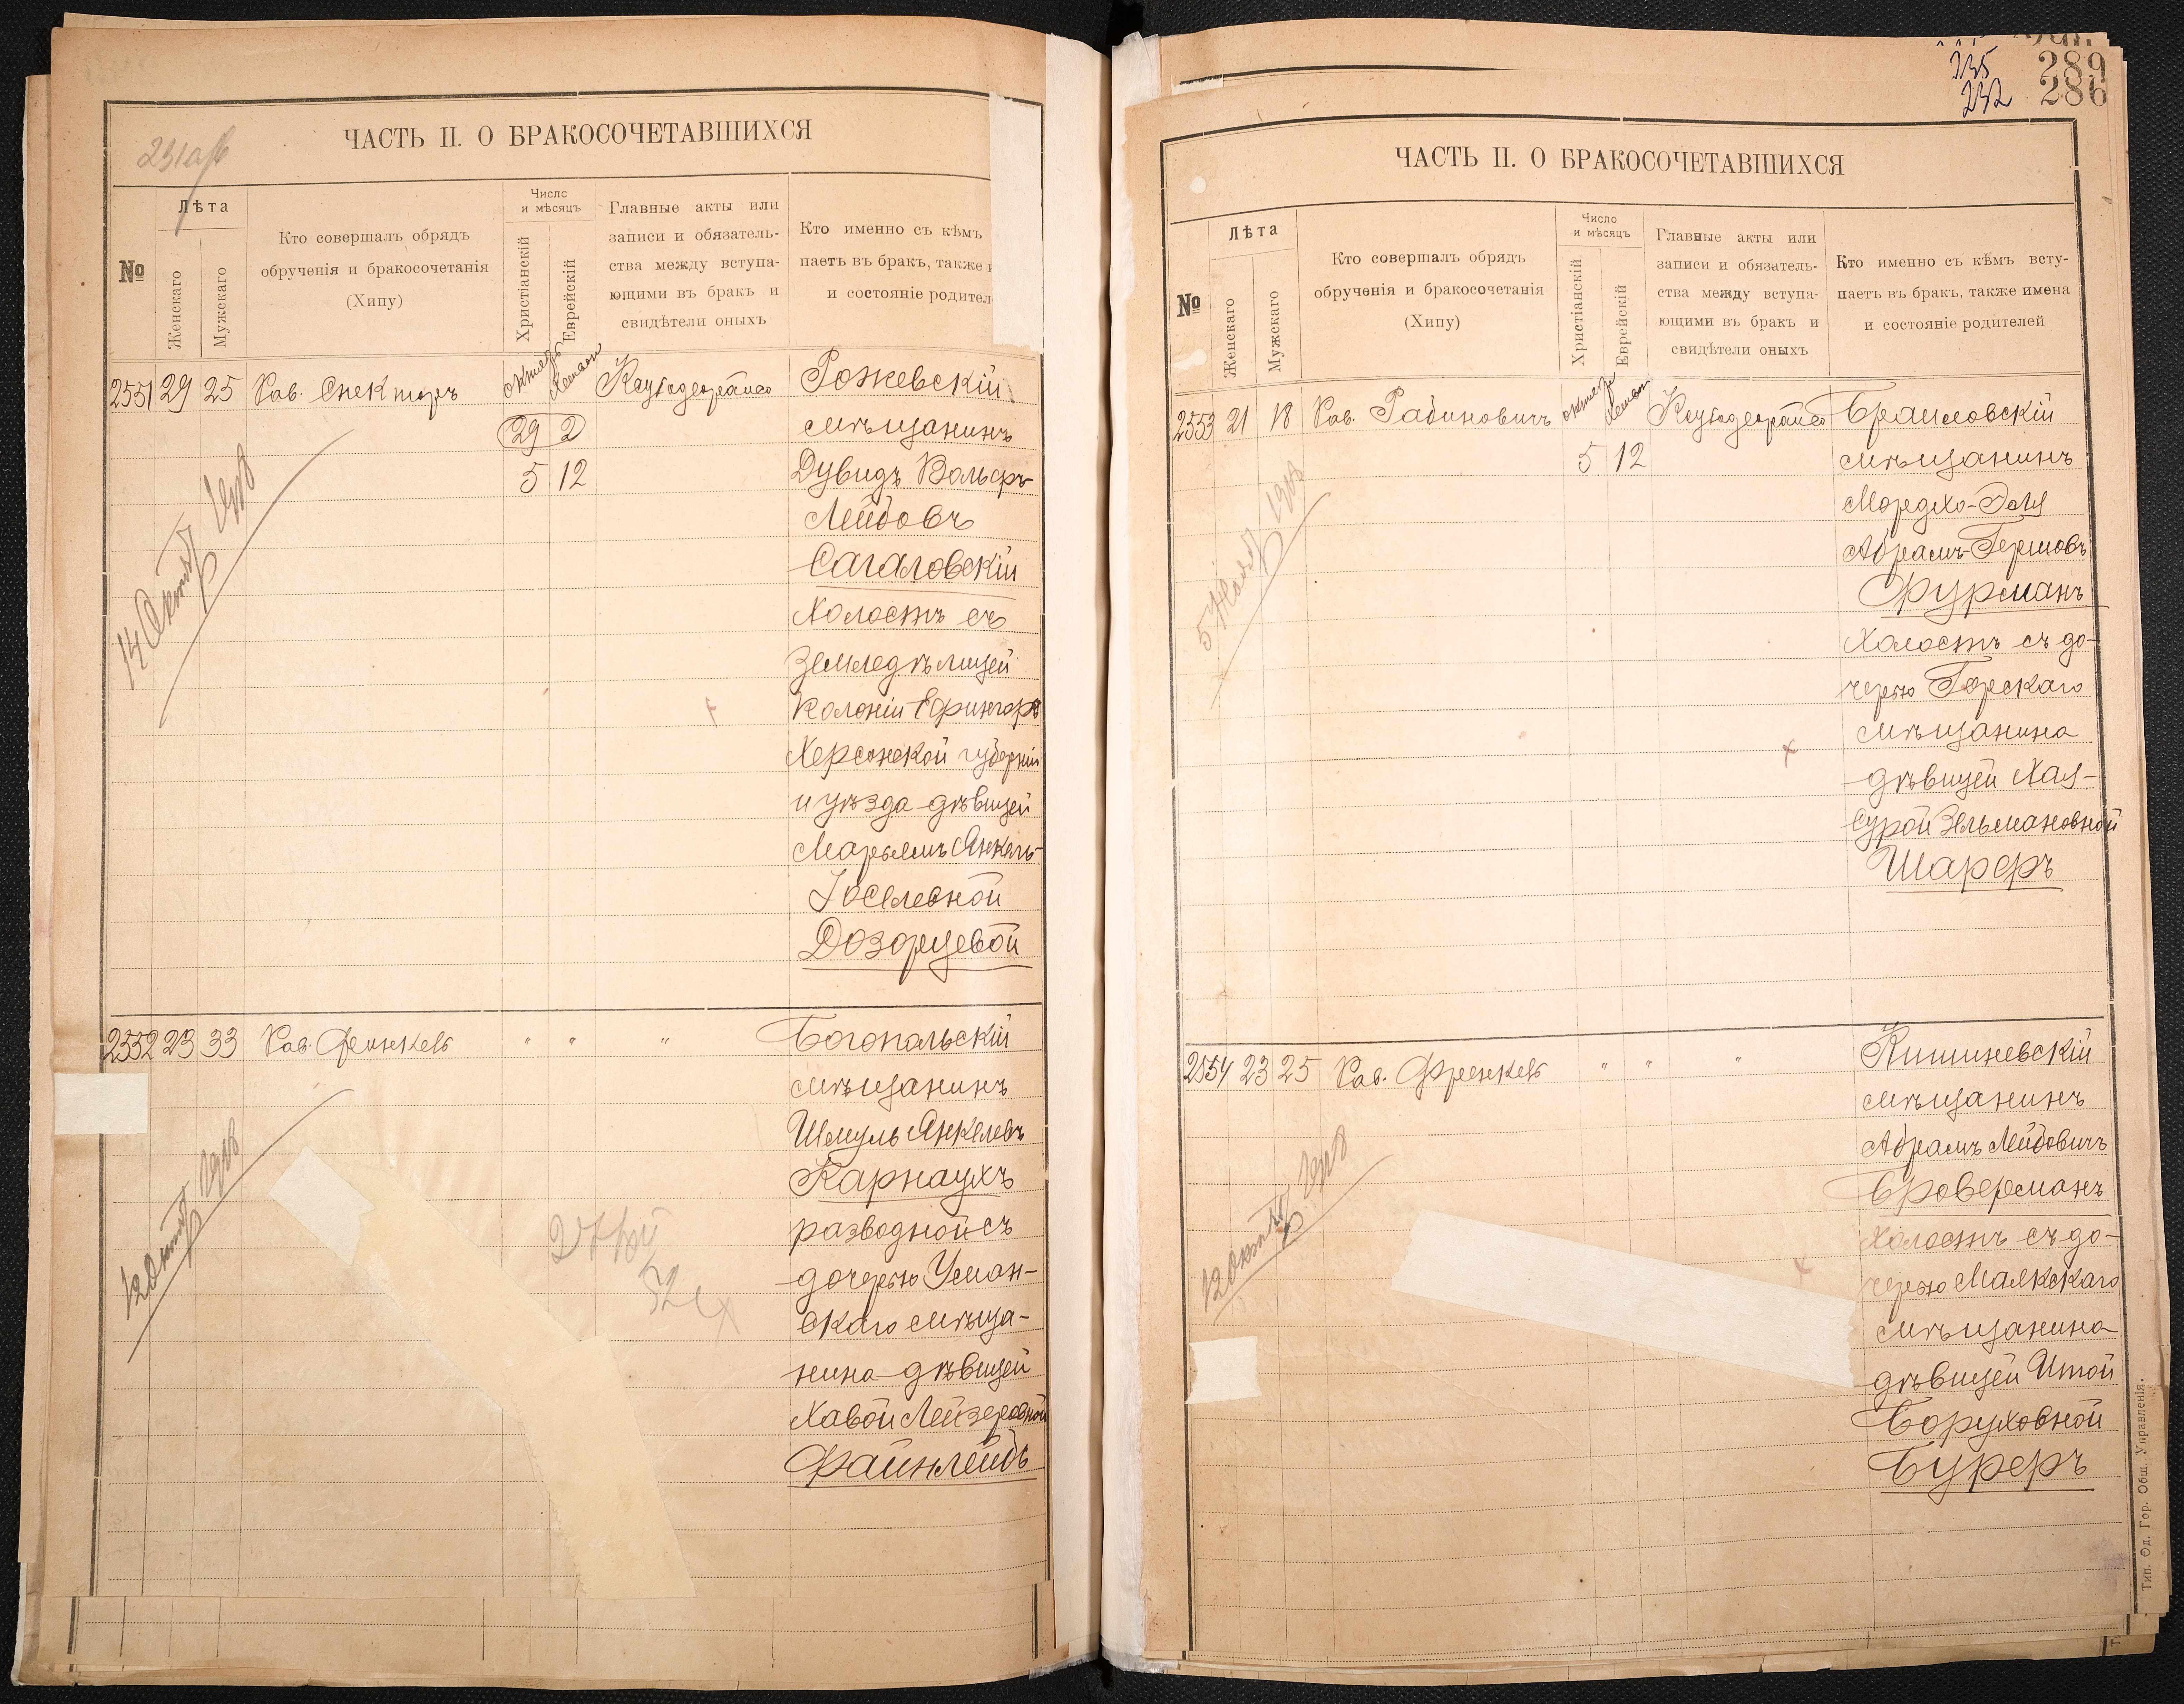 231об
ЧАСТЬ II. О БРАКОСОЧЕТАВШИХСЯ
№
Лѣта
Женскаго
Мужскаго
Кто совершалъ обрядъ
обрученія и бракосочетанія
(Хипу)
Число
и мѣсяцъ
Христіанскій
Еврейскій
Главные акты или
записи и обязатель-
ства между вступа-
ющими въ бракъ и
свидѣтели оныхъ
Кто именно съ кѣмъ
паетъ въ бракъ, также
и состояніе родител
2551 29 25 Рав. Спекторъ
29 2
5 12
Рожевскій
мѣщанинъ
Дувидъ Вольфъ-
Лейбовъ
Сагаловскій
холостъ съ
земледѣлицей
колоніи Ефингаръ
Херсонской губерніи
и уѣзда дѣвицей
Марьямъ Янкель-
Іоселевной
Дозорцевой
14 Октяб
2552 23 33 Рав. Френкель " " "
Богопольскій
мѣщанинъ
Шмуль Янкелевъ
Карнаухъ
разводной съ
дочерью Уман-
скаго мѣща-
нина дѣвицей
Хавой Лейзеровной
Файнлейбъ
12 Октяб
235 289
232 286
ЧАСТЬ II. О БРАКОСОЧЕТАВШИХСЯ
№
Лѣта
Женскаго
Мужскаго
Кто совершалъ обрядъ
обрученія и бракосочетанія
(Хипу)
Число
и мѣсяцъ
Христіанскій
Еврейскій
Главные акты или
записи и обязатель-
ства между вступа-
ющими въ бракъ и
свидѣтели оныхъ
Кто именно съ кѣмъ всту-
паетъ въ бракъ, также имена
и состояніе родителей
2553 21 18 Рав. Рабиновичъ
5 12
Браиловскій
мѣщанинъ
Мордхо-Эля
Абрамъ-Гершовъ
Фурманъ
холостъ съ до-
черью Горскаго
мѣщанина
дѣвицей Хая-
Сурой Зельмановной
Шарфъ
2554 23 25 Рав. Френкель " " "
Кишиневскій
мѣщанинъ
Абрамъ Лейбовичъ
Броверманъ
холостъ съ до-
черью Маякскаго
мѣщанина
дѣвицей Итой
Боруховной
Буферъ
12 Октяб
Тип. Од. Гор. Общ. Управленія.